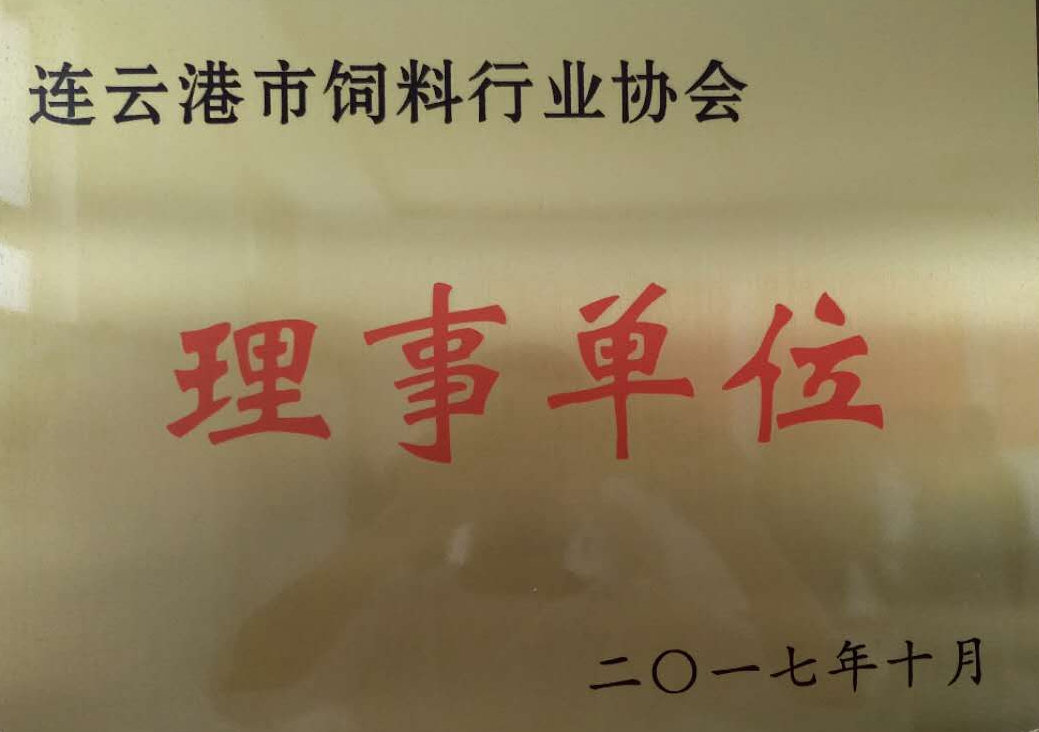 连云港市饲料行业协会
理事单位
二〇一七年十月